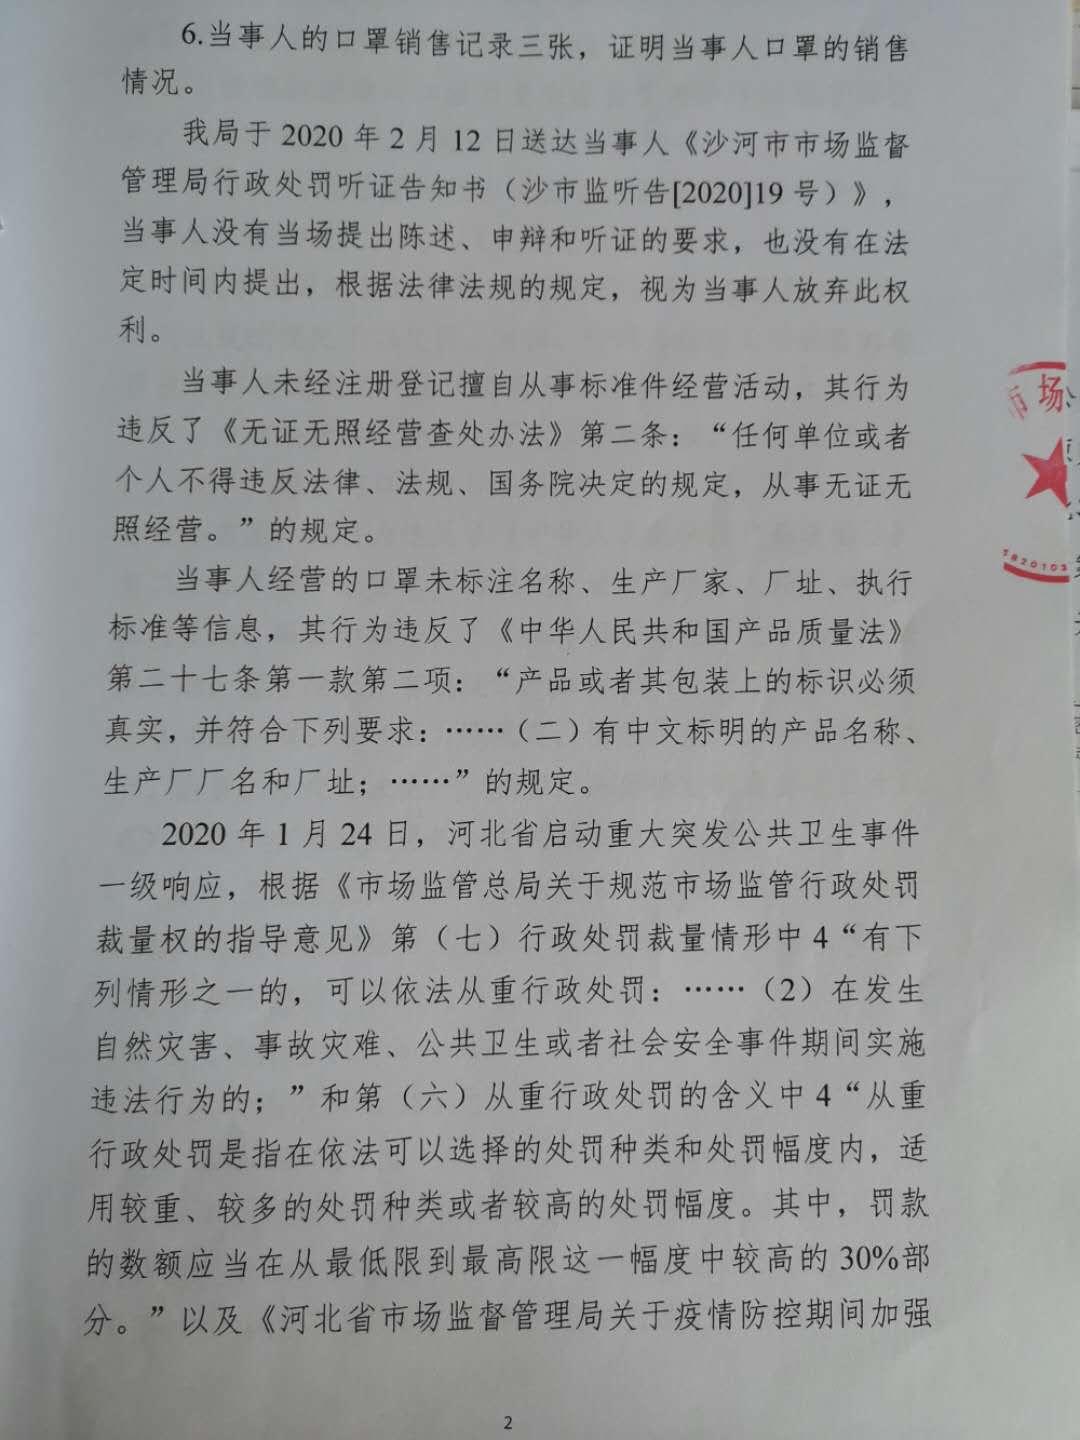 6.当事人的口罩销售记录三张，证明当事人口罩的销售
情况。
我局于 2020 年 2 月 12 日送达当事人《沙河市市场监督
管理局行政处罚听证告知书（沙市监听告[2020]19 号）》，
当事人没有当场提出陈述、申辩和听证的要求，也没有在法
定时间内提出，根据法律法规的规定，视为当事人放弃此权
利。
当事人未经注册登记擅自从事标准件经营活动，其行为
违反了《无证无照经营查处办法》第二条：“任何单位或者
个人不得违反法律、法规、国务院决定的规定，从事无证无
照经营。”的规定。
当事人经营的口罩未标注名称、生产厂家、厂址、执行
标准等信息，其行为违反了《中华人民共和国产品质量法》
第二十七条第一款第二项：“产品或者其包装上的标识必须
真实，并符合下列要求：……（二）有中文标明的产品名称、
生产厂厂名和厂址；……”的规定。
2020 年 1 月 24 日，河北省启动重大突发公共卫生事件
一级响应，根据《市场监管总局关于规范市场监管行政处罚
裁量权的指导意见》第（七）行政处罚裁量情形中 4“有下
列情形之一的，可以依法从重行政处罚：……（2）在发生
自然灾害、事故灾难、公共卫生或者社会安全事件期间实施
违法行为的；”和第（六）从重行政处罚的含义中 4“从重
行政处罚是指在依法可以选择的处罚种类和处罚幅度内，适
用较重、较多的处罚种类或者较高的处罚幅度。其中，罚款
的数额应当在从最低限到最高限这一幅度中较高的 30%部
分。”以及《河北省市场监督管理局关于疫情防控期间加强
市场
5820103
2